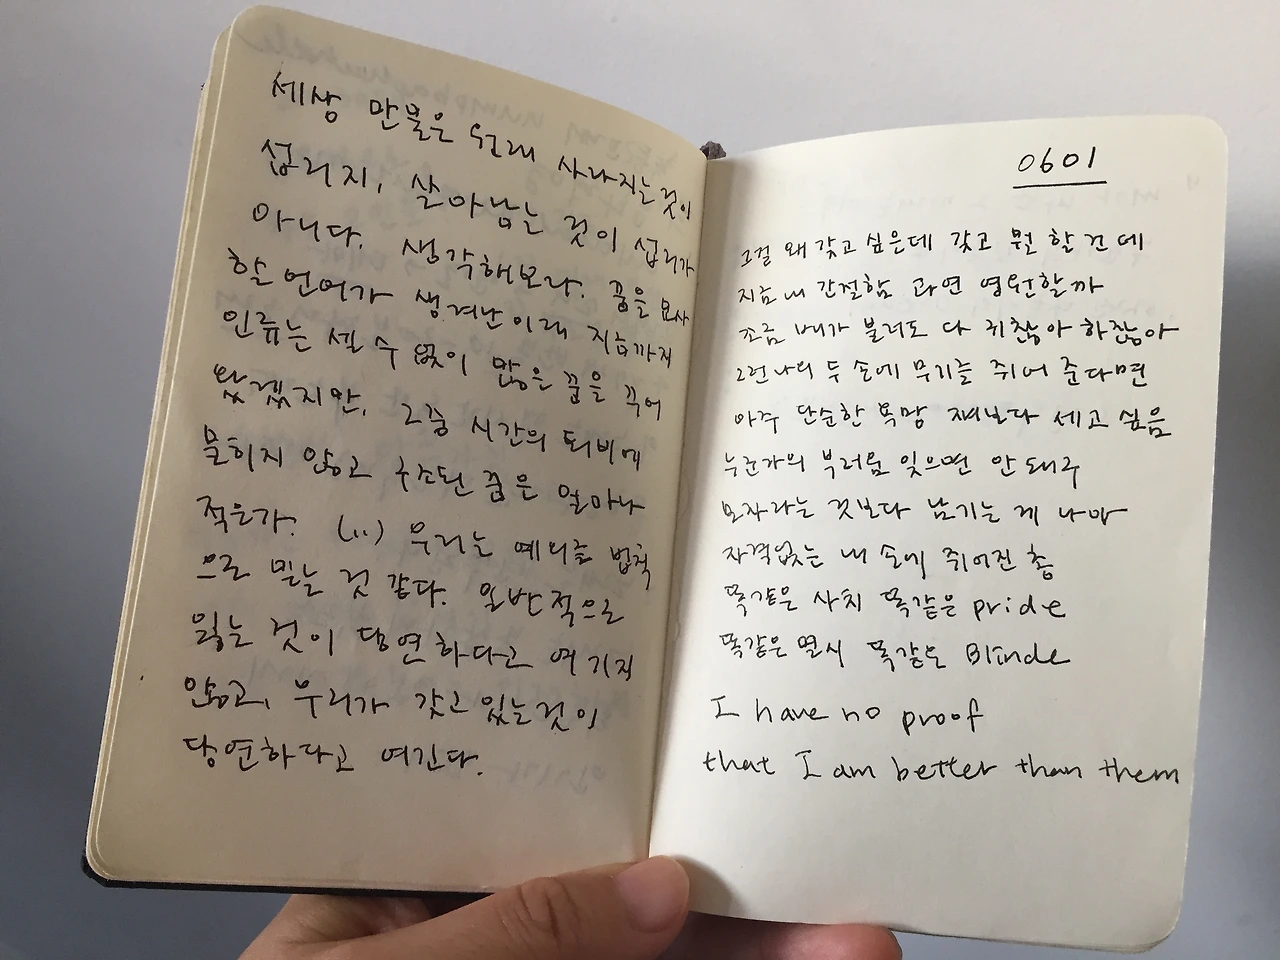 세상 만물은 원래 사라지는것이
섭리지, 살아남는 것이 섭리가
아니다. 생각해보라. 꿈을 묘사
할 언어가 생겨난이래 지금까지
인류는 셀 수 없이 많은 꿈을 꾸어
왔겠지만, 그중 시간의 퇴비에
묻히지 않고 구조된 꿈은 얼마나
적은가. (..) 우리는 예외를 법칙
으로 믿는 것 같다. 일반적으로
잃는 것이 당연하다고 여기지
않고, 우리가 갖고 있는것이
당연하다고 여긴다.
0601
그걸 왜 갖고 싶은데 갖고 뭘 할건데
지금 내 간절함 과연 영원할까
조금 배가 불러도 다 귀찮아 하잖아
그런 나의 두 손에 무기를 쥐어 준다면
아주 단순한 욕망 쟤보다 세고 싶음
누군가의 부러움 잊으면 안돼구
모자라는 것보다 남기는 게 나아
자격없는 내 손에 쥐어진 총
똑같은 사치 똑같은 pride
똑같은 멸시 똑같은 Blinde
I have no proof
that I am better than them